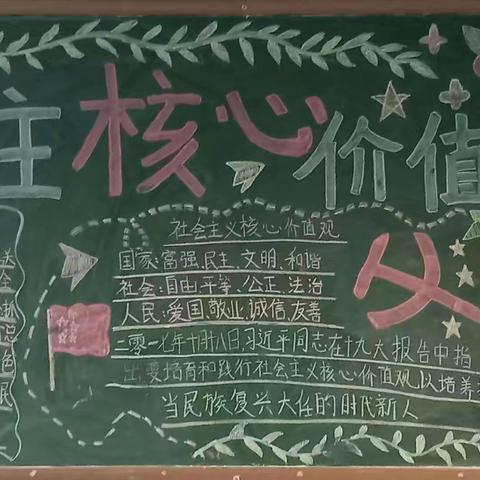 主核心价值
社会主义核心价值观
国家:富强,民主,文明,和谐
社会:自由,平等,公正,法治
人民:爱国,敬业,诚信,友善
二零一七年十月十八日,习近平同志在十九大报告中指
出,要培育和践行社会主义核心价值观,以培养
当民族复兴大任的时代新人